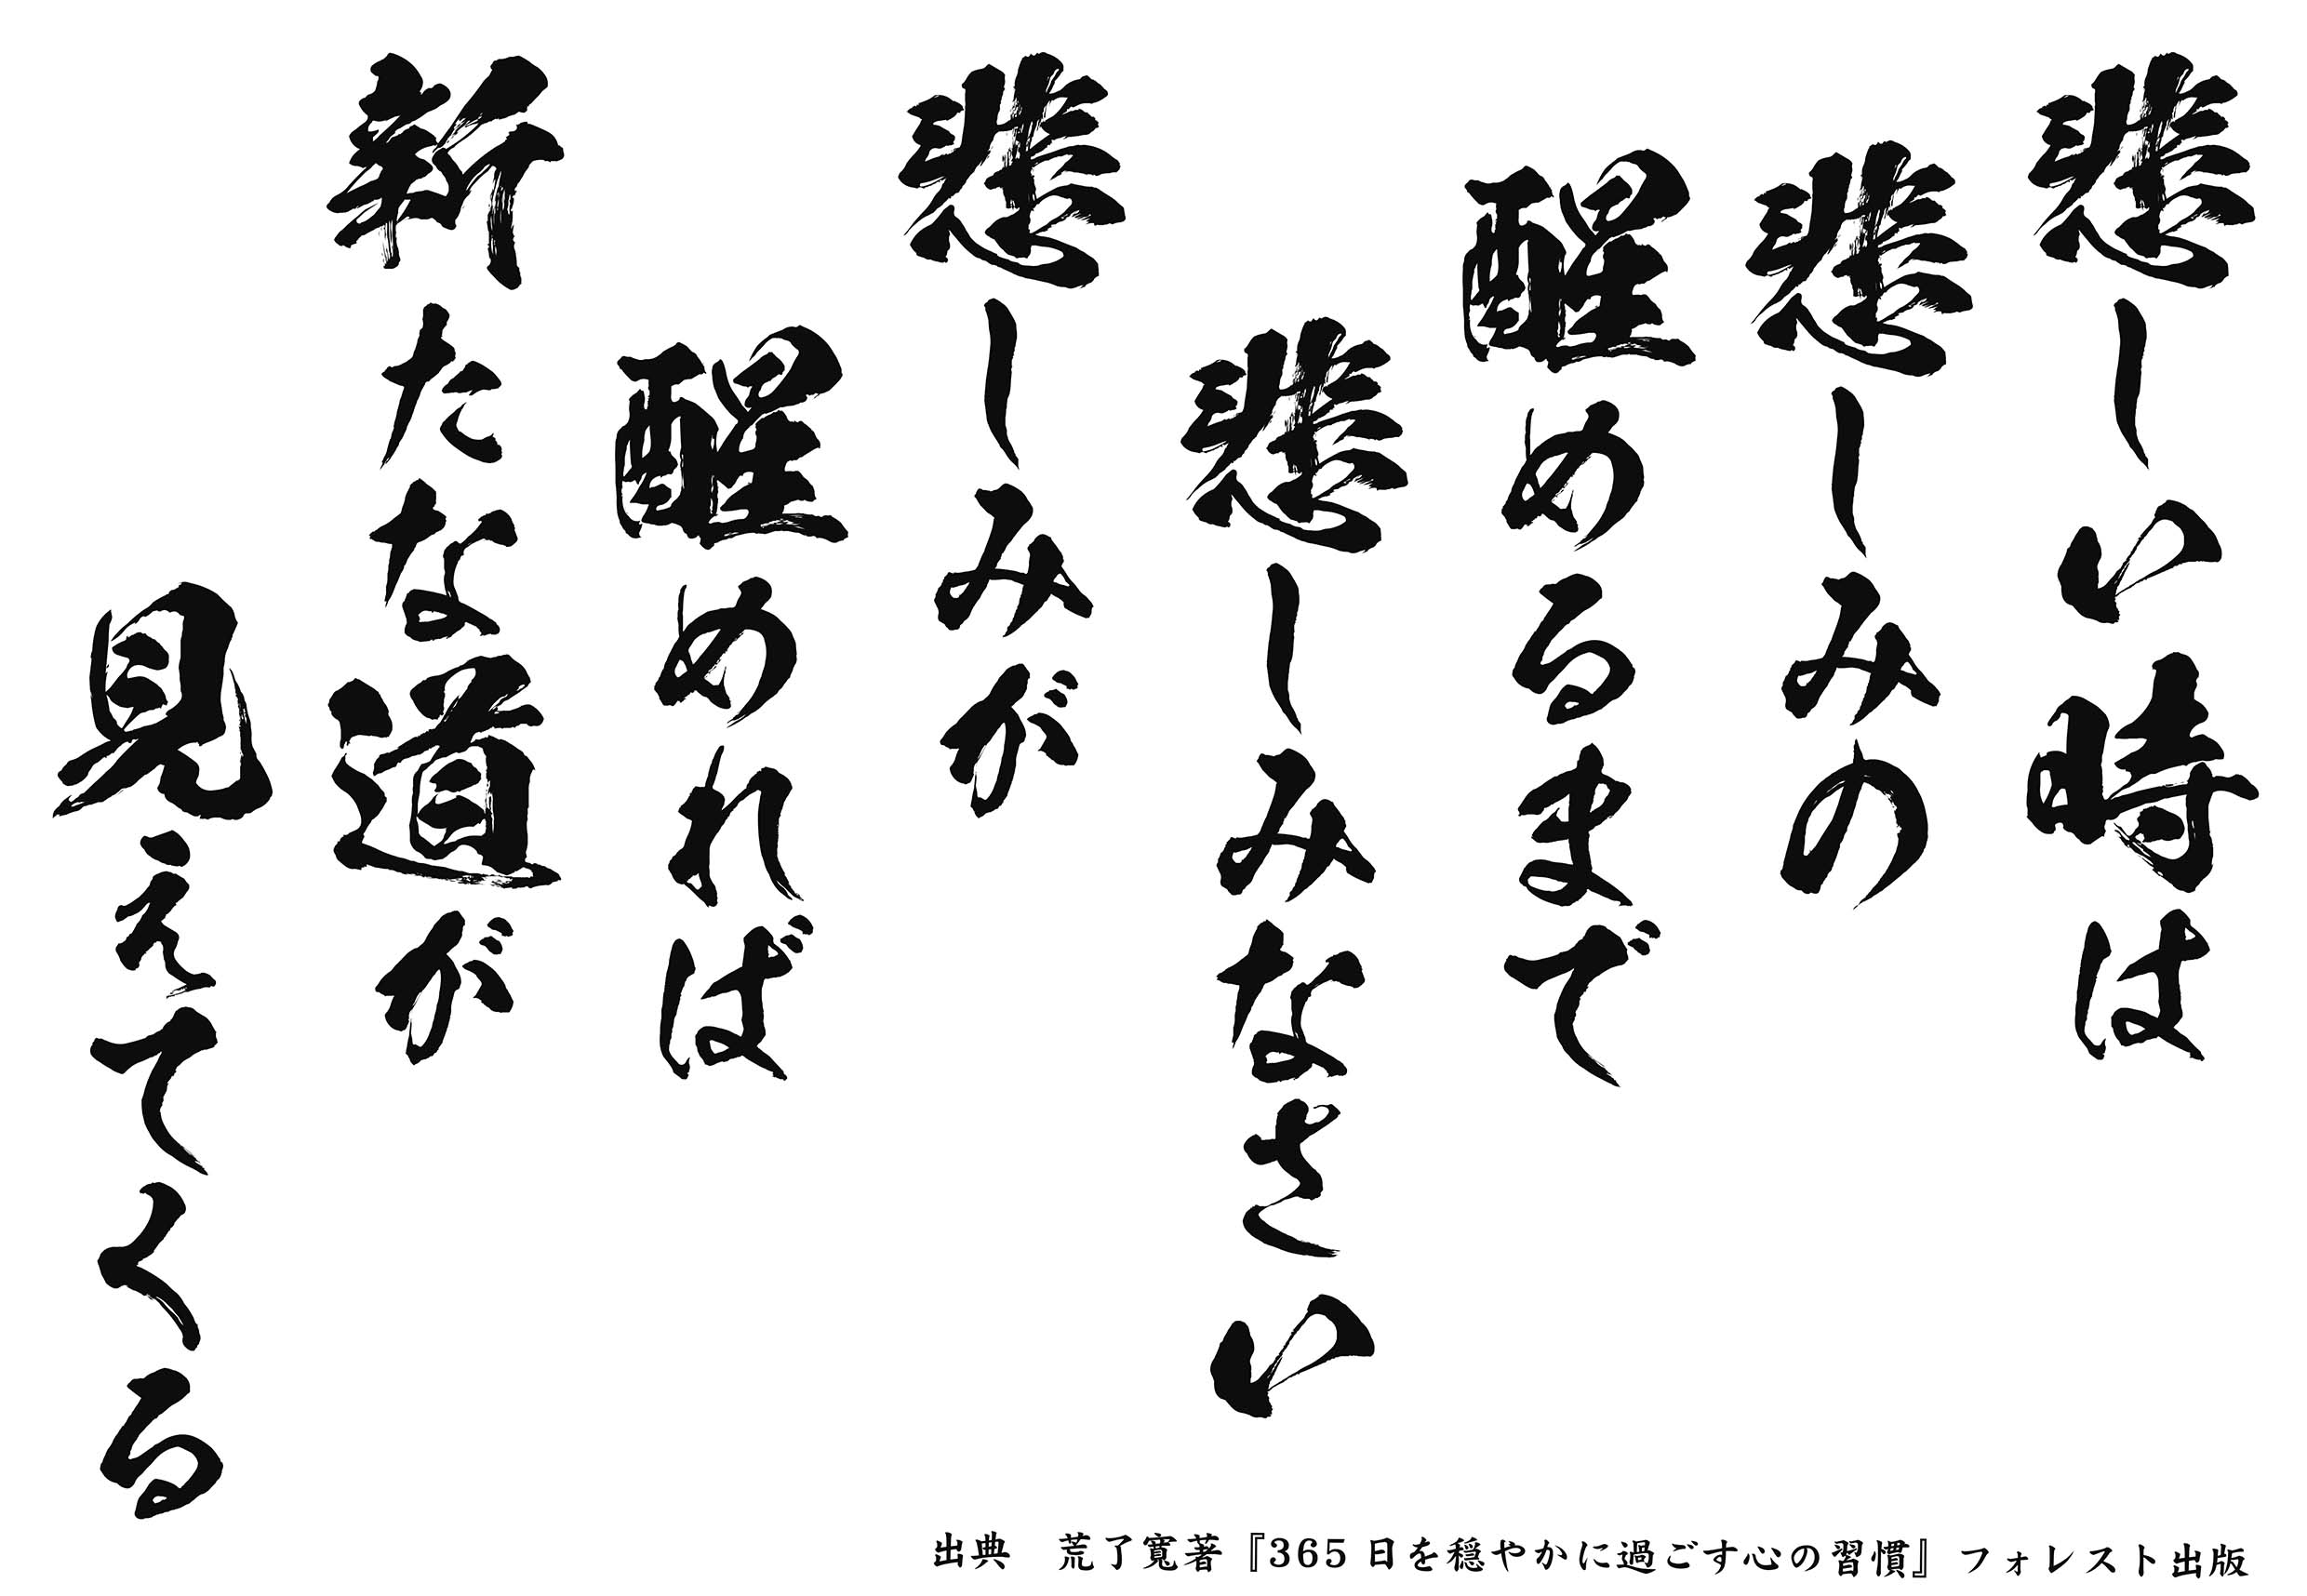 悲しい時は
悲しみの
醒めるまで
悲しみなさい
悲しみが
醒めれば
新たな道が
見えてくる
出典　荒了寛著『365日を穏やかに過ごす心の習慣』フォレスト出版